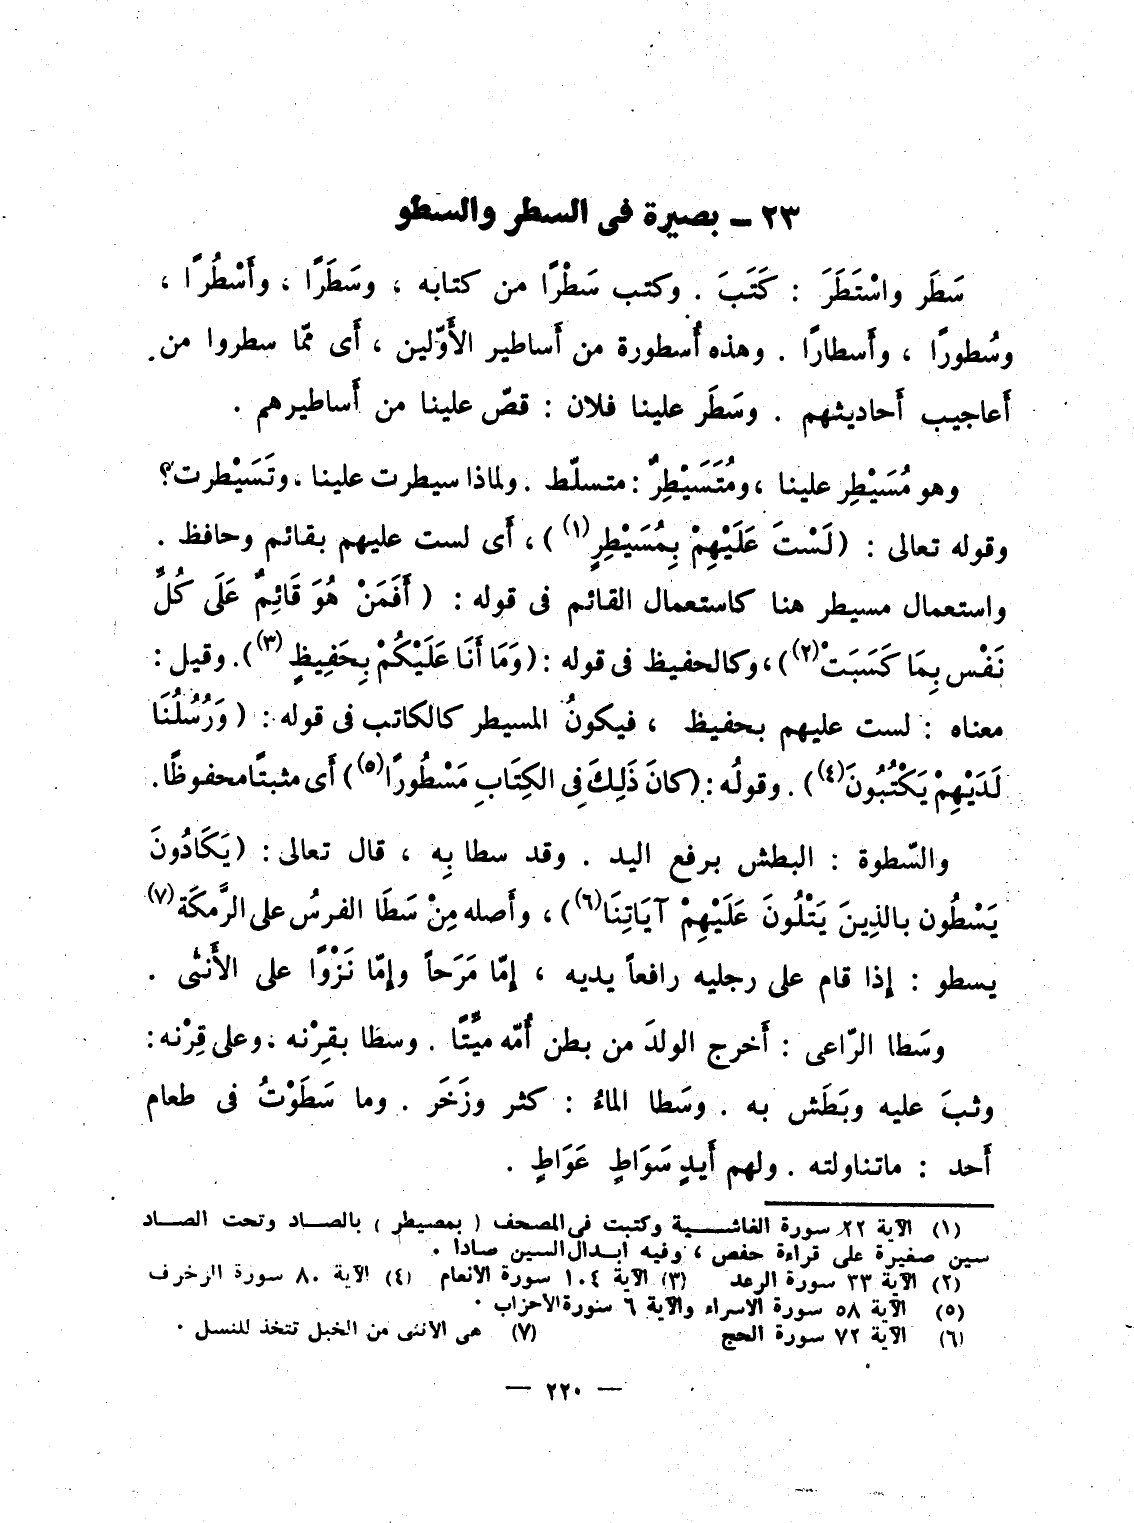 ٢٣ ـ بصيرة فى السطر والسطو
سَطَر واسْتَطَرَ : كَتَبَ . وكتب سَطْرًا من كتابه ، وسَطَرًا ، وأَسْطُرًا ،
وسُطورًا ، وأَسطارًا . وهذه أُسطورة من أَساطير الأَوّلين ، أَى ممّا سطروا من
أَعاجيب أَحاديثهم . وسَطَر علينا فلان : قصّ علينا من أَساطيرهم .
وهو مُسَيْطِر علينا ، ومُتَسَيْطِرٌ : متسلّط . ولماذا سيطرت علينا ، وتَسَيْطرت ؟
وقوله تعالى : ( لَسْتَ عَلَيْهِمْ بِمُسَيْطِرٍ(١) ) ، أَى لست عليهم بقائم وحافظ .
واستعمال مسيطر هنا كاستعمال القائم فى قوله : ( أَفَمَنْ هُوَ قَائِمٌ عَلَى كُلِّ
نَفْس بِمَا كَسَبَتْ(٢) ) ، وكالحفيظ فى قوله : ( وَمَا أَنَا عَلَيْكُمْ بِحَفِيظٍ(٣) ) . وقيل :
معناه : لست عليهم بحفيظ ، فيكونُ المسيطر كالكاتب فى قوله : ( وَرُسُلُنَا
لَدَيْهِمْ يَكْتُبُونَ(٤) ) . وقولُه : ( كانَ ذَلِكَ فِى الكِتَابِ مَسْطُورًا(٥) ) أَى مثبتًا محفوظًا .
والسّطوة : البطش برفع اليد . وقد سطا بِه ، قال تعالى : ( يَكَادُونَ
يَسْطُون بالذِينَ يَتْلُونَ عَلَيْهِمْ آيَاتِنَا(٦) ) ، وأَصله مِنْ سَطَا الفرسُ على الرَّمكَة(٧)
يسطو : إِذا قام على رجليه رافعاً يديه ، إِمّا مَرَحاً وإِمّا نَزْوًا على الأُنثى .
وسَطا الرّاعى : أَخرج الولدَ من بطن أُمّه ميِّتًا . وسطا بقِرْنه ، وعلى قِرْنه :
وثبَ عليه وبَطَش به . وسَطا الماءُ : كثر وزَخَر . وما سَطَوْتُ فى طعام
أَحد : ماتناولته . ولهم أَيدٍ سَوَاطٍ عَوَاطٍ .
(١) الآية ٢٢ سورة الغاشـــية وكتبت فى المصحف ( بمصيطر ) بالصاد وتحت الصاد
سين صغيرة على قراءة حفص ، وفيه ابدال السين صادا .
(٢) الآية ٣٣ سورة الرعد (٣) الآية ١٠٤ سورة الأنعام (٤) الآية ٨٠ سورة الزخرف
(٥) الآية ٥٨ سورة الاسراء والآية ٦ سورة الأحزاب .
(٦) الآية ٧٢ سورة الحج (٧) هى الأنثى من الخيل تتخذ للنسل .
— ٢٢٠ —